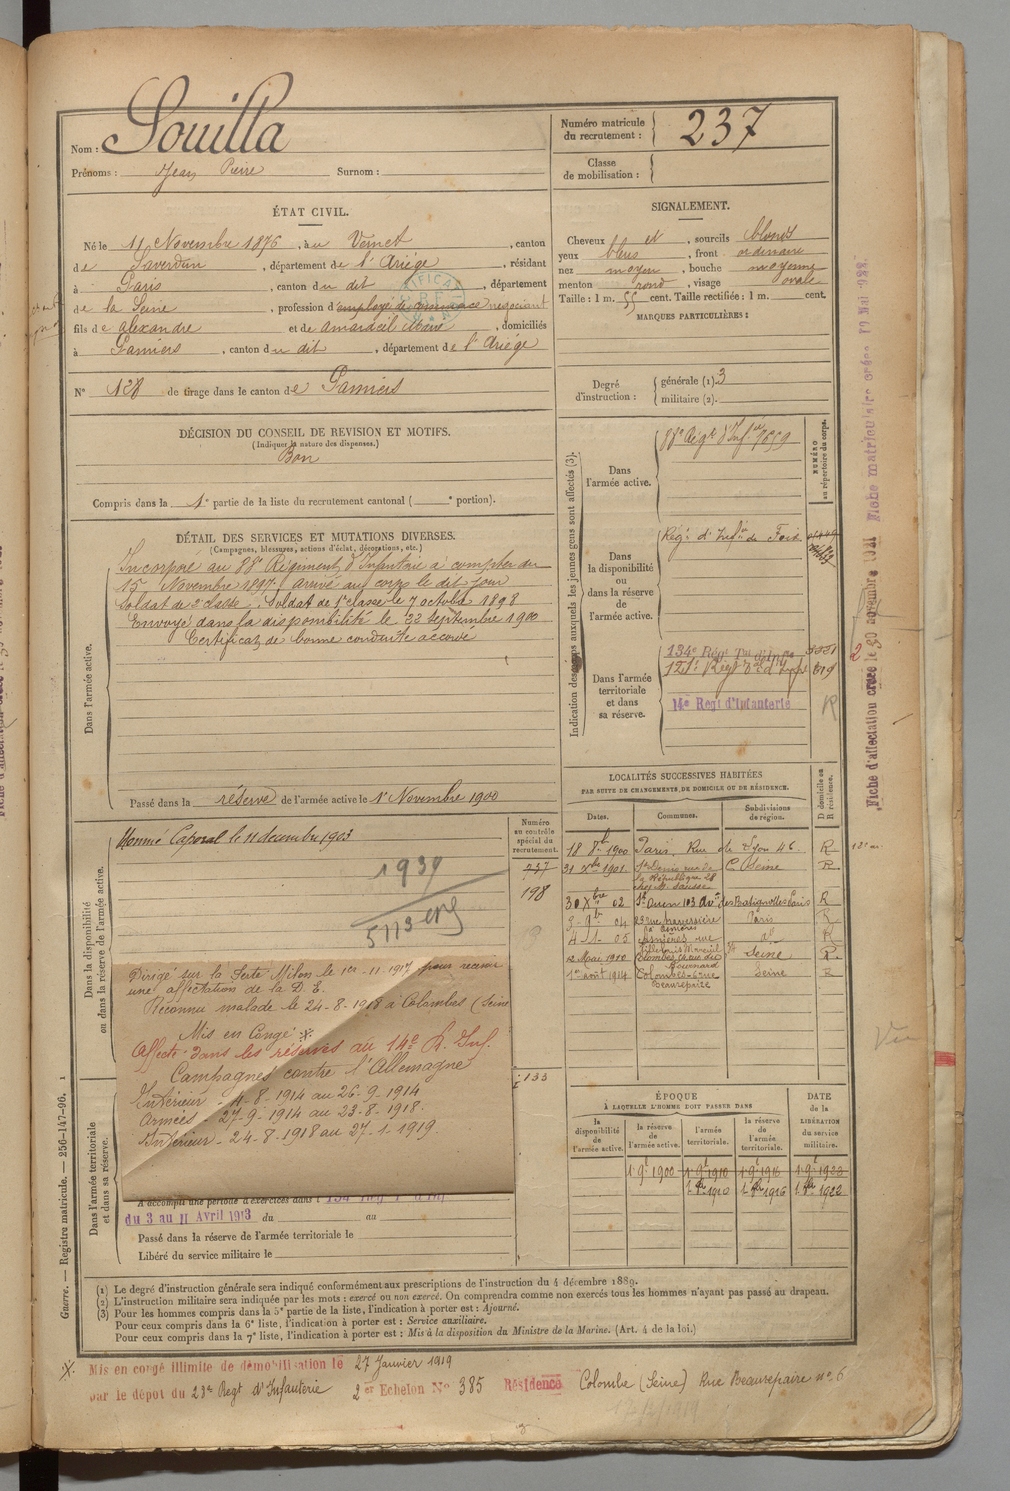 Nom : Souilla
Prénoms : Jean Pierre Surnom :
Numéro matricule du recrutement : 237
Classe de mobilisation :
ÉTAT CIVIL.
Né le 11 Novembre 1876, à u Vernet, canton
de Saverdun, département de l'Ariège, résidant
à Paris, canton du dit, département
de la Seine, profession d'employé de commerce négociant
fils de Alexandre et de Amardeil Marie, domiciliés
à Pamiers, canton du dit, département de l'Ariège
N° 128 de tirage dans le canton de Pamiers
SIGNALEMENT.
Cheveux et, sourcils blonds
yeux bleus, front ordinaire
nez moyen, bouche moyenne
menton rond, visage ovale
Taille : 1 m. 55 cent. Taille rectifiée : 1 m. cent.
MARQUES PARTICULIÈRES :
Degré d'instruction : générale (1). 3
militaire (2).
DÉCISION DU CONSEIL DE REVISION ET MOTIFS.
(Indiquer la nature des dispenses.)
Bon
Compris dans la 1e partie de la liste du recrutement cantonal ( e portion).
DÉTAIL DES SERVICES ET MUTATIONS DIVERSES.
(Campagnes, blessures, actions d'éclat, décorations, etc.)
Dans l'armée active.
Incorporé au 88e Régiment d'Infanterie à compter du
15 Novembre 1897. Arrivé au corps le dit jour
soldat de 2e classe. Soldat de 1e classe le 7 octobre 1898
Envoyé dans la disponibilité le 22 septembre 1900
Certificat de bonne conduite accordé
Passé dans la réserve de l'armée active le 1er Novembre 1900
Indication des corps auxquels les jeunes gens sont affectés (3).
NUMÉRO au répertoire du corps.
Dans l'armée active.
88e Régt d'Infie 7659
Dans la disponibilité ou dans la réserve de l'armée active.
Régt d'Infie de Foix
Dans l'armée territoriale et dans sa réserve.
134e Régt Tal d'Infie
121e Régt
14e Regt d'Infanterie
R
LOCALITÉS SUCCESSIVES HABITÉES
PAR SUITE DE CHANGEMENTS DE DOMICILE OU DE RÉSIDENCE.
Dates. Communes. Subdivisions de région. D domicile ou R résidence.
18 1900 Paris, Rue de Lyon 46. R
31 Xbre 1901 St Denis rue de la République 28 Seine R
30 Xbre 02 St Ouen 103 Av. des Batignolles Paris R
04 23 rue Traversière Paris R
4 - 1 - 05 Asnières rue R
12 Mai 1910 Colombes Seine R
1er août 1914 Colombes 6 rue Beaurepaire Seine R
Dans la disponibilité ou dans la réserve de l'armée active.
Nommé Caporal le 11 decembre 1903
1939
5113
Numéro au contrôle spécial du recrutement.
237
198
133
Dirigé sur la Serte Milon le 1er - 11 - 1917 pour recevoir
une affectation de la D. E.
Reconnu malade le 24-8-1918 à Colombes (Seine
Mis en Congé
Affecté dans les réserves au 14e R. Inf.
Campagnes contre l'Allemagne
Intérieur - 4-8-1914 au 26-9-1914
Armées - 27-9-1914 au 23-8-1918.
Intérieur - 24-8-1918 au 27-1-1919
Dans l'armée territoriale et dans sa réserve.
A accompli une période d'exercices dans l
du 3 au 11 Avril 1913 du au
Passé dans la réserve de l'armée territoriale le
Libéré du service militaire le
ÉPOQUE
À LAQUELLE L'HOMME DOIT PASSER DANS
la disponibilité de l'armée active. la réserve de l'armée active. l'armée territoriale. la réserve de l'armée territoriale.
DATE de la LIBÉRATION du service militaire.
1900 1910 1916 1922
1910 1916 1922
(1) Le degré d'instruction générale sera indiqué conformément aux prescriptions de l'instruction du 4 décembre 1889.
(2) L'instruction militaire sera indiquée par les mots : exercé ou non exercé. On comprendra comme non exercés tous les hommes n'ayant pas passé au drapeau.
(3) Pour les hommes compris dans la 5e partie de la liste, l'indication à porter est : Ajourné.
Pour ceux compris dans la 6e liste, l'indication à porter est : Service auxiliaire.
Pour ceux compris dans la 7e liste, l'indication à porter est : Mis à la disposition du Ministre de la Marine. (Art. 4 de la loi.)
Mis en congé illimité de démobilisation le 27 Janvier 1919
par le dépot du 23e Regt d'Infanterie 2er Echelon N° 385 Résidence Colombe (Seine) Rue Beaurepaire n° 6
Guerre. — Registre matricule. — 256-147-96.
Fiche d'affectation créée le 30 novembre 1921
Fiche matriculaire créée